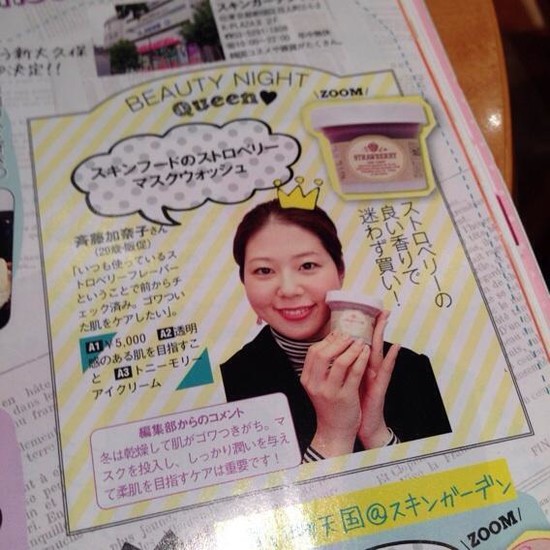 新大久保
決定!!
スキンガーデン
BEAUTY NIGHT
Queen♥
\ZOOM/
STRAWBERRY
スキンフードのストロベリー
マスクウォッシュ
斉藤加奈子さん
(20歳・販促)
「いつも使っているス
トロベリーフレーバー
ということで前からチ
ェック済み。ゴワつい
た肌をケアしたい」。
A1 ¥5,000 A2 透明
感のある肌を目指すこ
と A3 トニーモリー
アイクリーム
ストロベリーの
良い香りで
迷わず買い!
編集部からのコメント
冬は乾燥して肌がゴワつきがち。マ
スクを投入し、しっかり潤いを与え
て柔肌を目指すケアは重要です!
天国@スキンガーデン
ZOOM/